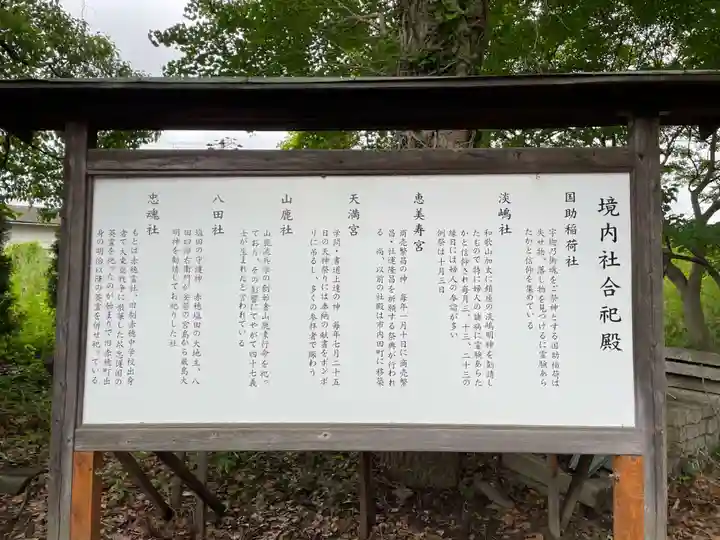 境内社合祀殿
国助稲荷社
宇迦乃御魂をご祭神とする国助稲荷は
失せ物、落し物を見つけるに霊験あら
たかと信仰を集めている
淡嶋社
和歌山加太に鎮座の淡嶋明神を勧請し
たもので特に婦人の諸病に霊験あらた
かと信仰され毎月三、十三、二十三の
縁日には婦人の参詣が多い
例祭は十月三日
恵美寿宮
商売繁昌の神 毎年一月十日に商売繁
昌・社運隆昌を祈願する祭典が行われ
る 尚、以前の社殿は市内田町に移築
天満宮
学問・書道上達の神 毎年七月二十五
日の天神祭りには奉納の献書をボンボ
リに吊るし、多くの参拝者で賑わう
山鹿社
山鹿流兵学の創始者山鹿素行命を祀っ
ており、その影響にてやがて四十七義
士が生まれたと言われている
八田社
塩田の守護神 赤穂塩田の大地主、八
田四郎右衛門が安芸の宮島から厳島大
明神を勧請してお祀りした社
忠魂社
もとは赤穂霊社、旧制赤穂中学校出身
者で大東亜戦争に散華した故忠護国の
英霊を祀ったのが始まりで旧赤穂町出
身の明治以降の英霊を併せ祀っている